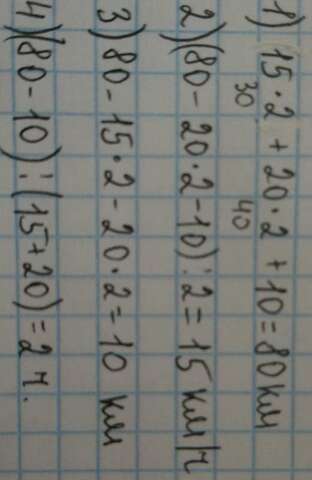 1) 15·2 + 20·2 + 10 = 80 км
30 40
2) (80 - 20·2 - 10) : 2 = 15 км/ч
3) 80 - 15·2 - 20·2 = 10 км
4) (80 - 10) : (15 + 20) = 2 ч.